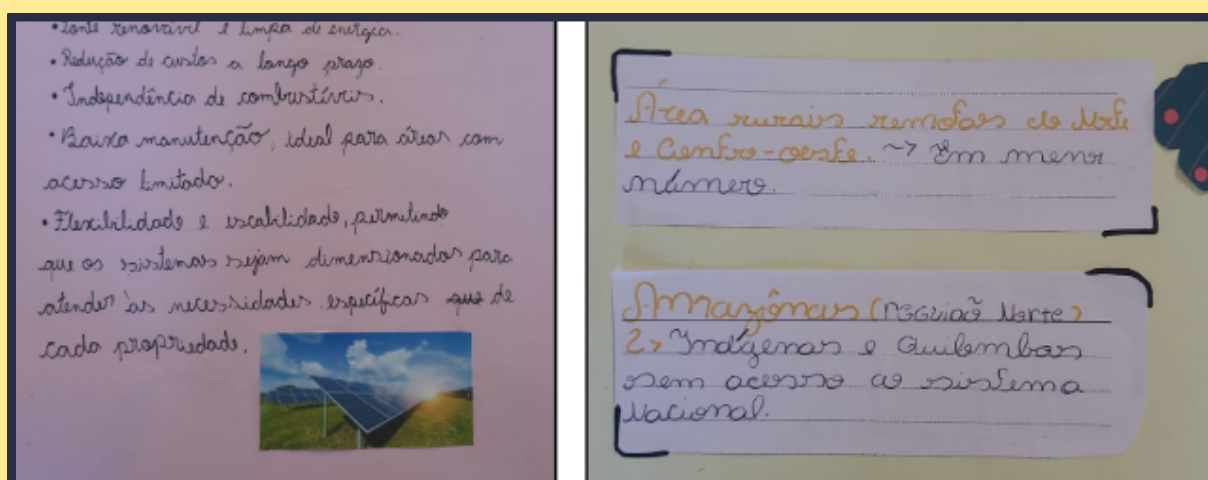 • Fonte renovável e limpa de energia.
• Redução de custos a longo prazo.
• Independência de combustíveis.
• Baixa manutenção, ideal para áreas com
acesso limitado.
• Flexibilidade e escabilidade, permitindo
que os sistemas sejam dimensionados para
atender às necessidades específicas que de
cada propriedade.
Área rurais remotas do Norte
e Centro-oeste. ~> Em menor
número.
Amazônas (REGUIAÕ Norte)
2> Indígenas e Quilombas
sem acesso ao sistema
Nacional.